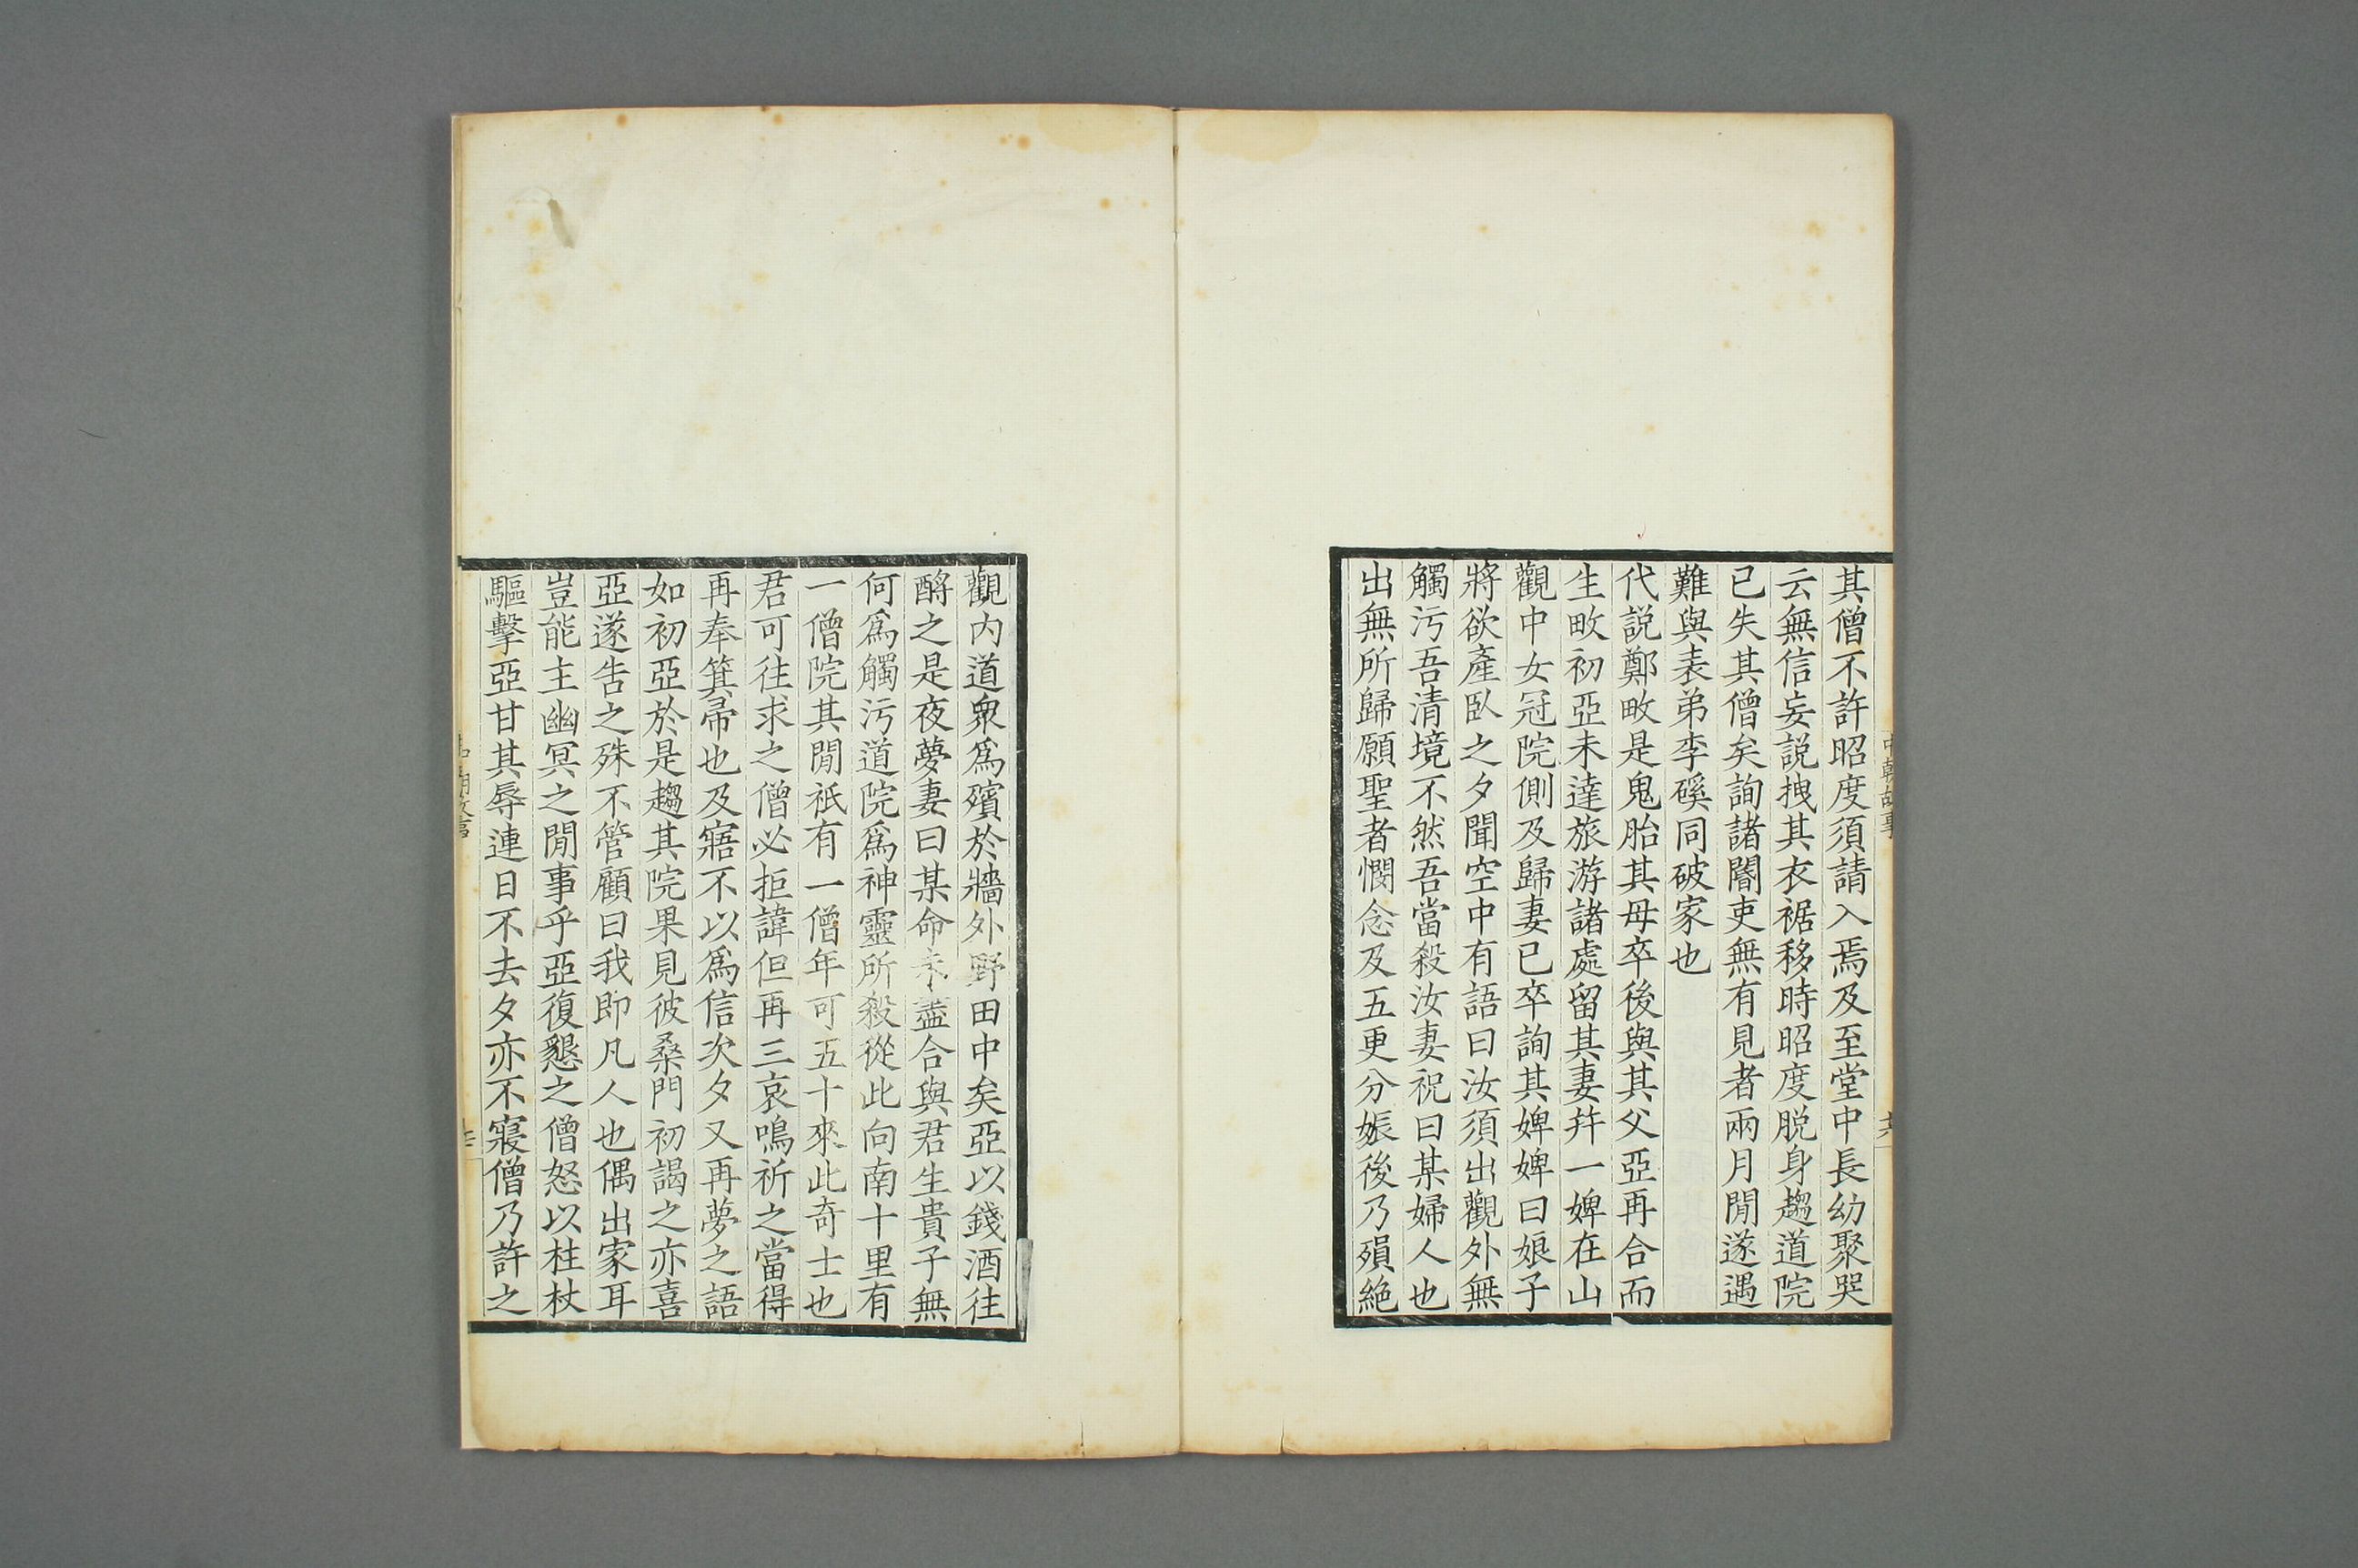 中朝故事
十六
其僧不許昭度須請入焉及至堂中長幼聚哭
云無信妄説拽其衣裾移時昭度脱身趨道院
已失其僧矣詢諸閽吏無有見者兩月閒遂遇
難與表弟李磎同破家也
代説鄭畋是鬼胎其母卒後與其父亞再合而
生畋初亞未達旅游諸處留其妻幷一婢在山
觀中女冠院側及歸妻已卒詢其婢婢曰娘子
將欲產臥之夕聞空中有語曰汝須出觀外無
觸污吾清境不然吾當殺汝妻祝曰某婦人也
出無所歸願聖者憫念及五更分娠後乃殞絶
觀內道衆爲殯於牆外野田中矣亞以錢酒往
酹之是夜夢妻曰某命未盡合與君生貴子無
何爲觸污道院爲神靈所殺從此向南十里有
一僧院其閒袛有一僧年可五十來此奇士也
君可往求之僧必拒諱但再三哀鳴祈之當得
再奉箕帚也及寤不以爲信次夕又再夢之語
如初亞於是趨其院果見彼桑門初謁之亦喜
亞遂告之殊不管顧曰我即凡人也偶出家耳
豈能主幽冥之閒事乎亞復懇之僧怒以柱杖
驅擊亞甘其辱連日不去夕亦不寢僧乃許之